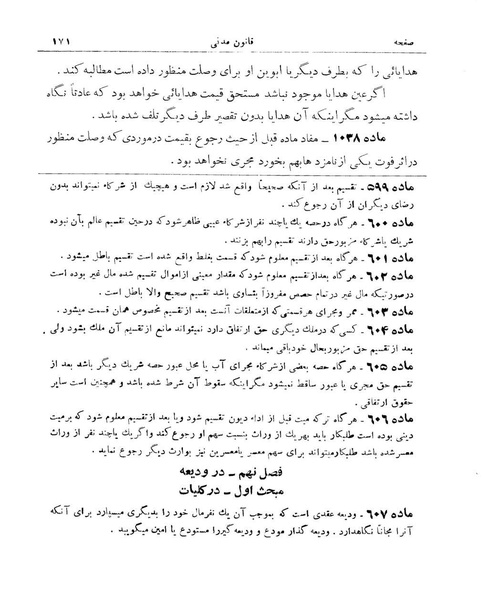 صفحه قانون مدنی ۱۷۱
هدایائی را که بطرف دیگر یا ابوین او برای وصلت منظور داده است مطالبه کند .
اگر عین هدایا موجود نباشد مستحق قیمت هدایائی خواهد بود که عادتاً نگاه
داشته میشود مگر اینکه آن هدایا بدون تقصیر طرف دیگر تلف شده باشد .
ماده ۱۰۳۸ ـ مفاد ماده قبل از حیث رجوع بقیمت در موردی که وصلت منظور
در اثر فوت یکی از نامزد ها بهم بخورد مجری نخواهد بود .
ماده ۵۹۹ ـ تقسیم بعد از آنکه صحیحاً واقع شد لازم است و هیچیک از شرکاء نمیتواند بدون
رضای دیگران از آن رجوع کند .
ماده ۶۰۰ ـ هر گاه در حصه یک یا چند نفر از شرکاء عیبی ظاهر شود که در حین تقسیم عالم بآن نبوده
شریک یا شرکاء مزبور حق دارند تقسیم را بهم بزنند .
ماده ۶۰۱ ـ هر گاه بعد از تقسیم معلوم شود که قسمت بغلط واقع شده است تقسیم باطل میشود .
ماده ۶۰۲ ـ هر گاه بعد از تقسیم معلوم شود که مقدار معینی از اموال تقسیم شده مال غیر بوده است
در صورتیکه مال غیر در تمام حصص مفروزاً بتساوی باشد تقسیم صحیح والا باطل است .
ماده ۶۰۳ ـ ممر و مجرای هر قسمتی که از متعلقات آنست بعد از تقسیم مخصوص همان قسمت میشود .
ماده ۶۰۴ ـ کسی که در ملک دیگری حق ارتفاق دارد نمیتواند مانع از تقسیم آن ملک بشود ولی
بعد از تقسیم حق مزبور بحال خود باقی میماند .
ماده ۶۰۵ ـ هر گاه حصه بعضی از شرکاء مجرای آب یا محل عبور حصه شریک دیگر باشد بعد از
تقسیم حق مجری یا عبور ساقط نمیشود مگر اینکه سقوط آن شرط شده باشد و همچنین است سایر
حقوق ارتفاقی .
ماده ۶۰۶ ـ هر گاه ترکه میت قبل از اداء دیون تقسیم شود ویا بعد از تقسیم معلوم شود که بر میت
دینی بوده است طلبکار باید بهر یک از وراث بنسبت سهم او رجوع کند و اگر یک یا چند نفر از وراث
معسر شده باشد طلبکار میتواند برای سهم معسر یا معسرین نیز بوارث دیگر رجوع نماید .
فصل نهم ـ در ودیعه
مبحث اول ـ در کلیات
ماده ۶۰۷ ـ ودیعه عقدی است که بموجب آن یک نفر مال خود را بدیگری میسپارد برای آنکه
آنرا مجاناً نگاهدارد . ودیعه گذار مودع و ودیعه گیر را مستودع یا امین میگویند .